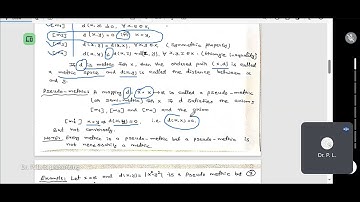 d(x,x) ≥ 0, ∀ x ∈ X
[M2] d(x,y) = 0 x = y,
d(x,y) = d(y,x), (Symmetric property)
[M4] d(x,y) ≤ (triangle inequality)
If d is metric for X, then the ordered pair (X,d) is called
a metric space and d(x,y) is called the distance between x
and y.
Pseudo-metric: A mapping d: X × X → R is called a pseudo-metric
(or semi-metric) for X if d satisfies the axioms
[M1], [M3] and [M4] and the axiom
x = y ⇒ d(x,y) = 0. i.e. d(x,x) = 0.
But not conversely.
Note: Every metric is a pseudo-metric but a pseudo-metric is
not necessarily a metric.
Dr. P. L.
Example: Let X = R and d(x,y) = |x²-y²| is a pseudo metric but
Dr. P. L.